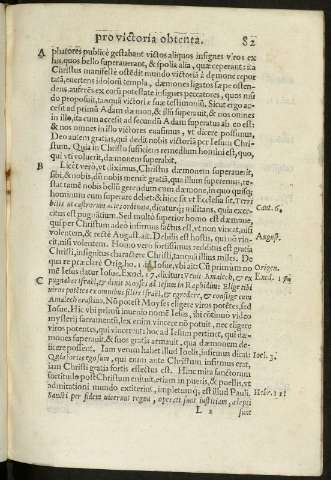 pro victoria obtenta. 82
A phatores publicè gestabant victos aliquos insignes viros ex
his, quos bello superauerant, & spolia alia, quæ ceperant: ita
Christus manifestè ostēdit mundo victoriā à dæmone repor
tatā, euertens idolorū templa, dæmones ligatos sæpe osten-
dens, auferēs ex eorū potestate insignes peccatores, quos nisi
do proposuit, tanquā victoriæ suæ testimoniū. Sicut ergo ac-
cessit ad primū Adam dæmon, & illū superauit, & nos omnes
in illo, ita cum accessit ad secundū Adam superatus ab eo est:
& nos omnes in illo victores euasimus, vt dicere possimus,
Deo autem gratias, qui dedit nobis victoriā per Iesum Chri-
stum. Quia in Christo sufficiens remedium homini est, quo,
qui vti voluerit, dæmonem superabit.
B Licèt vero, vt diximus, Christus dæmonem superauerit,
sibi, & nobis, dū nobis meruit gratiā, qua illum superemus, re-
stat tamē nobis bellū gerēdum cum dæmone, in quo quisq;
hominum eum superare debet: & hinc fit vt Ecclesia sit, Terri
bilis vt castrorum acies ordinata, dicatur q; militans, quia exer-
citus est pugnātium. Sed multò superior homo est dæmone,
qui per Christum adeò infirmus factus est, vt non vincat, nisi
volentem, & rectè August. ait. Debilis est hostis, qui nō vin-
cit, nisi volentem. Homo verò fortissimus redditus est gratia
Christi, insignitus charactere Christi, tanquā illius miles. De
qua re præclarè Orig. ho. 11. in Iosue, vbi ait: Cū primum no
mē Iesus datur Iosue, Exod. 17. dicitur: Venit Amalech, & ex
C pugnabat israel, & dixit Moyses ad iesum in Raphidim: Elige tibi
viros potētes ex omnibus filiis israel, & egredere, & confuge cum
Amalech crastino. Nō potest Moyses eligere viros potētes sed
Iosue. Hic vbi primū inuenio nomē Iesu, ibi cōtinuò video
mysterij sacramentū, lex enim vincere nō potuit, nec eligere
viros potentes, qui vincerent: hoc ad Iesum pertinet, qui da-
emonem ligauit, & suos gratia armauit, qua dæmonem de-
iicere possent. Iam verum habet illud Ioelis, infirmus dicat:
Quia fortis ego sum, qui enim ante Christum, infirmus erat,
iam Christi gratia fortis effectus est. Hinc mira sanctorum
fortitudo post Christum enituit, etiam in pueris, & puellis, vt
admirationi mundo extiterint, impletumq; est illud Pauli.
Sancti per fidem vicerunt regna, operati sunt iustitiam, adepti
Cant. 6.
August.
Origen.
Exod. 17.
Ioel. 3.
Hebr. 11.
L 2 sunt